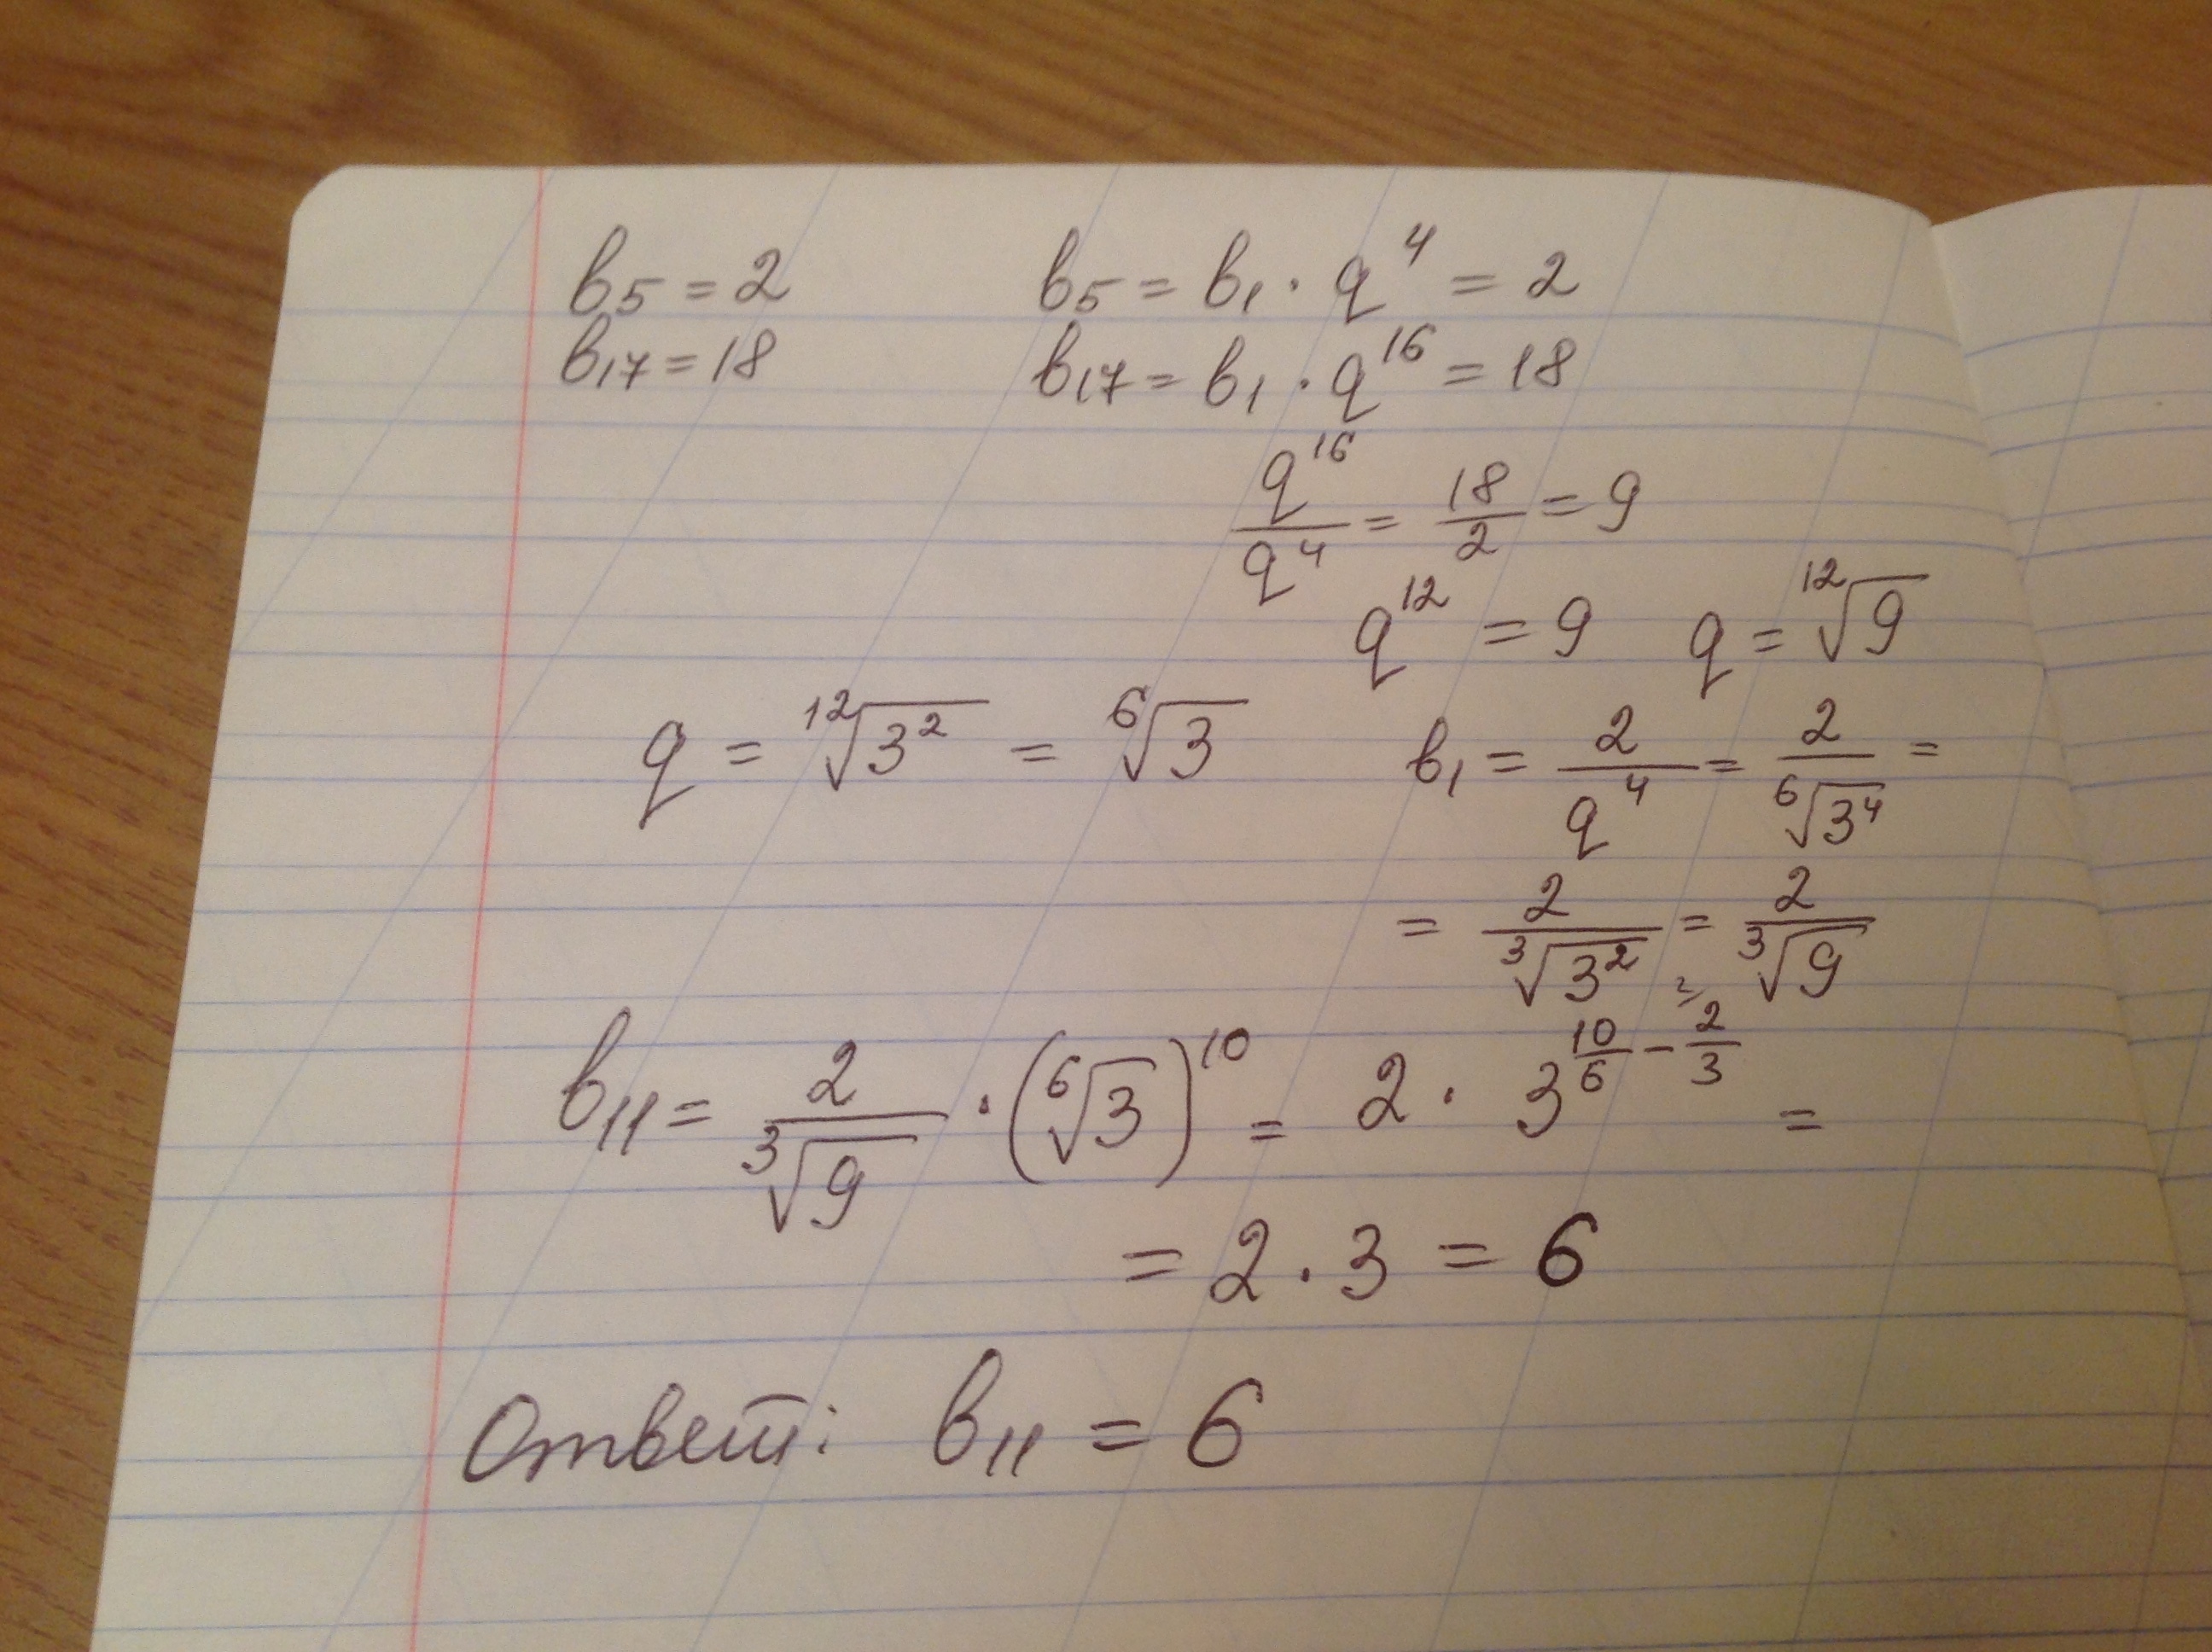 b₅ = 2 b₅ = b₁ · q⁴ = 2
b₁₇ = 18 b₁₇ = b₁ · q¹⁶ = 18
q¹⁶/q⁴ = 18/2 = 9
q¹² = 9 q = ¹²√9
q = ¹²√3² = ⁶√3 b₁ = 2/q⁴ = 2/⁶√3⁴ =
= 2/³√3² = 2/³√9
b₁₁ = 2/³√9 · (⁶√3)¹⁰ = 2 · 3^(10/6 - 2/3) =
= 2 · 3 = 6
Ответ: b₁₁ = 6